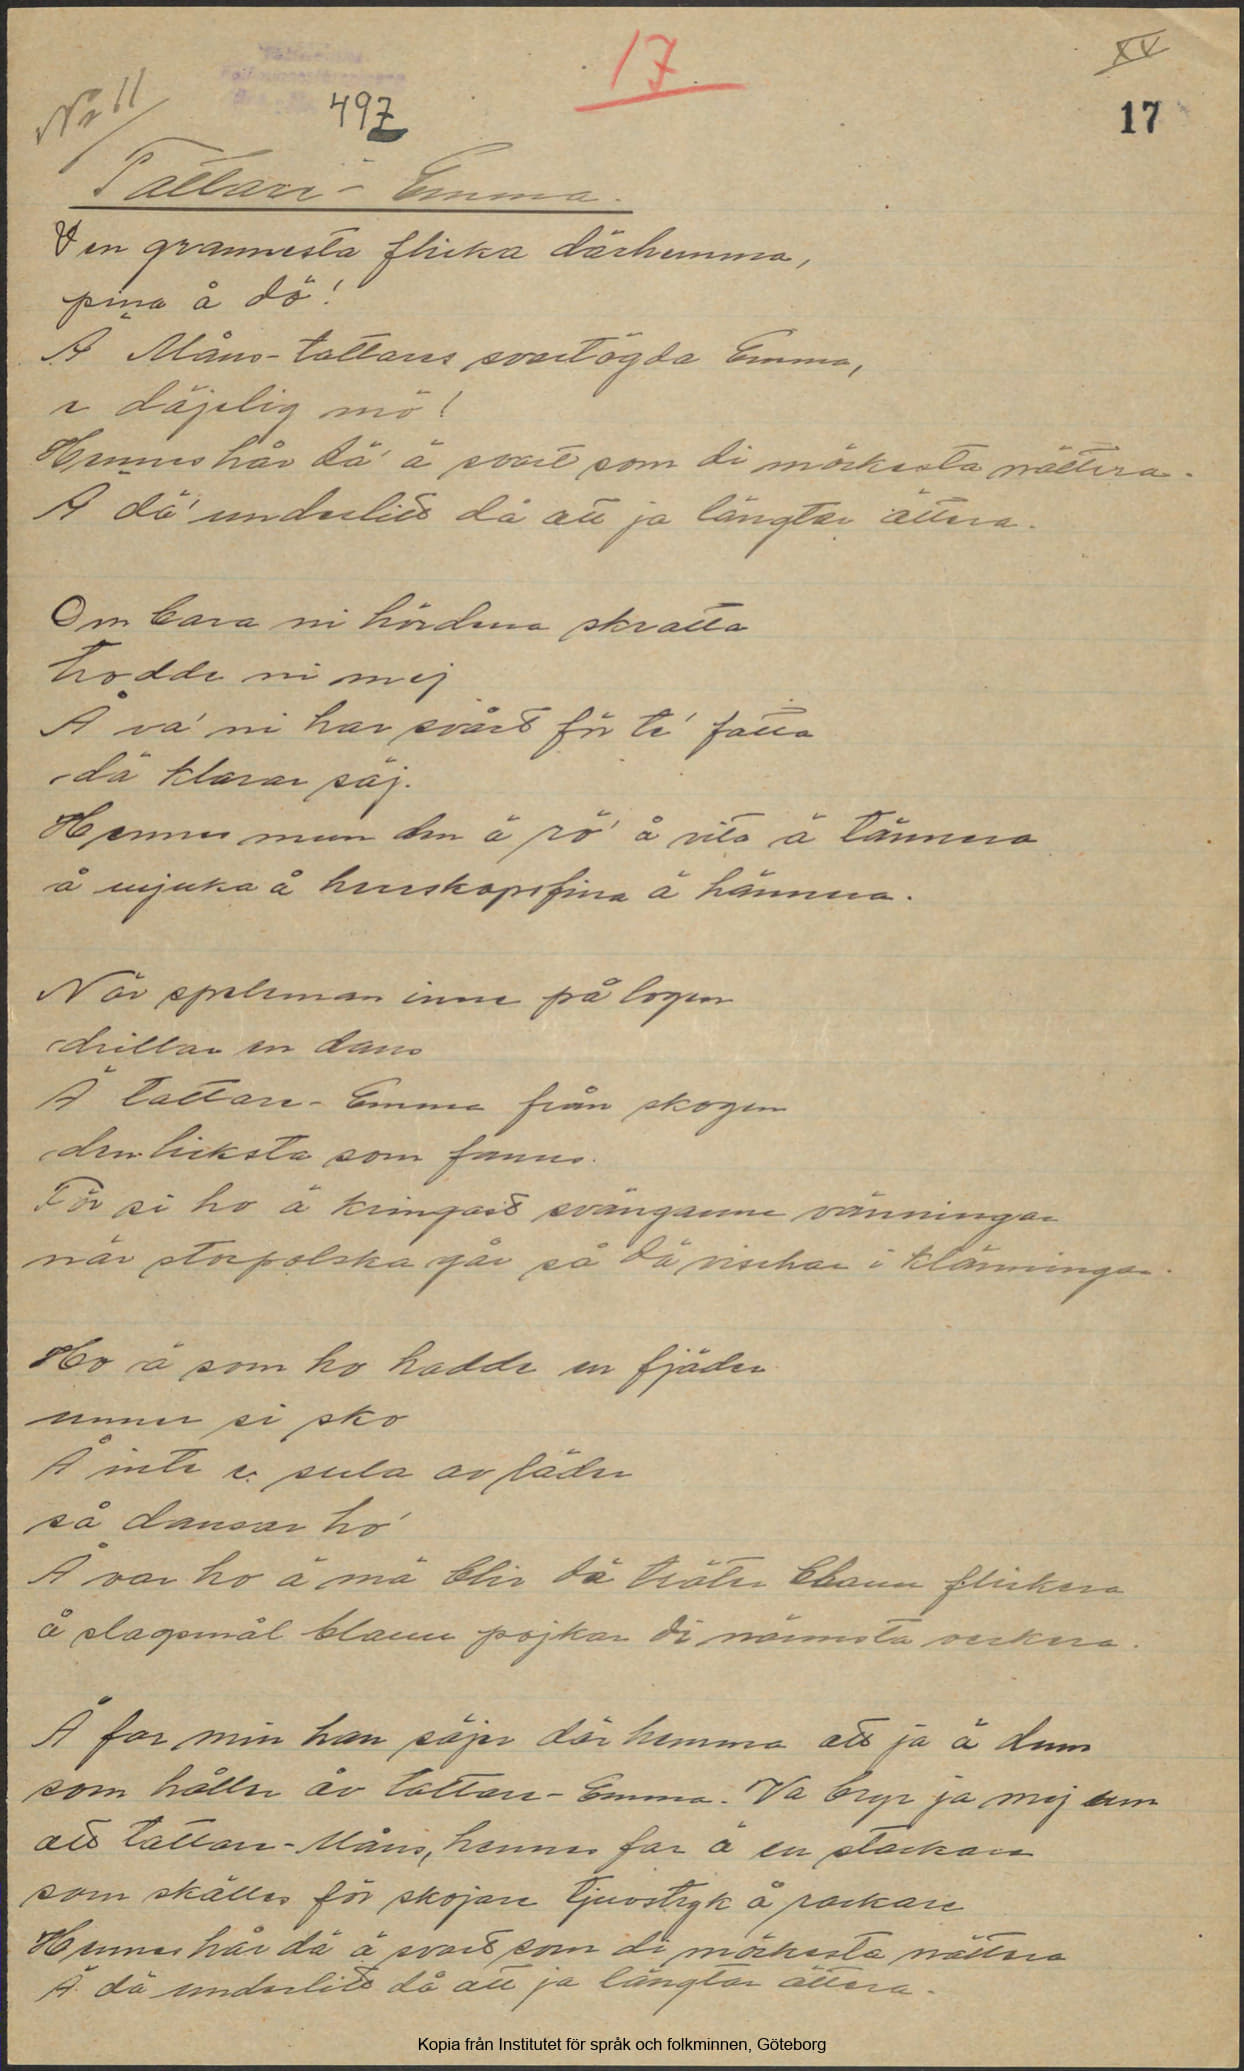 No 11
497
17
XV
17
Tattare-Emma.
Den grannesta flicka därhemma,
pina å dö!
Ä Måns-tattares svartögda Emma,
e däjelig mö!
Hennes hår dä' ä svart som di mörkesta nättera.
Ä dä' underlitt då att ja längtar ättera.
Om bara ni hördena skratta
trodde ni mej
Å va' ni har svårt för te' fatta
dä klarar säj.
Hennes mun den ä rö' å vita ä tännera
å mjuka å herrskapsfina ä hännera.
När speleman inne på logen
drillar en dans
Ä tattare-Emma från skogen
den licksta som fanns.
För si ho ä kringast svänganne vänningar
när storpolska går så dä visslar i klänningar.
Ho ä som ho hadde en fjäder
unner si sko
Å inte e sula av läder
så dansar ho'
Å var ho ä mä blir dä träter blann flickera
å slagsmål blann pojkar di nännsta veckera.
Å far min han säjer där hemma att ja ä dum
som håller åv tattare-Emma. Va bryr ja mej um
att tattare-Måns, hennes far ä en stackare
som skälles för skojare tjuvstryk å rackare
Hennes hår dä ä svart som di mörkesta nättera
Ä dä underlitt då att ja längtar ättera.
Kopia från Institutet för språk och folkminnen, Göteborg